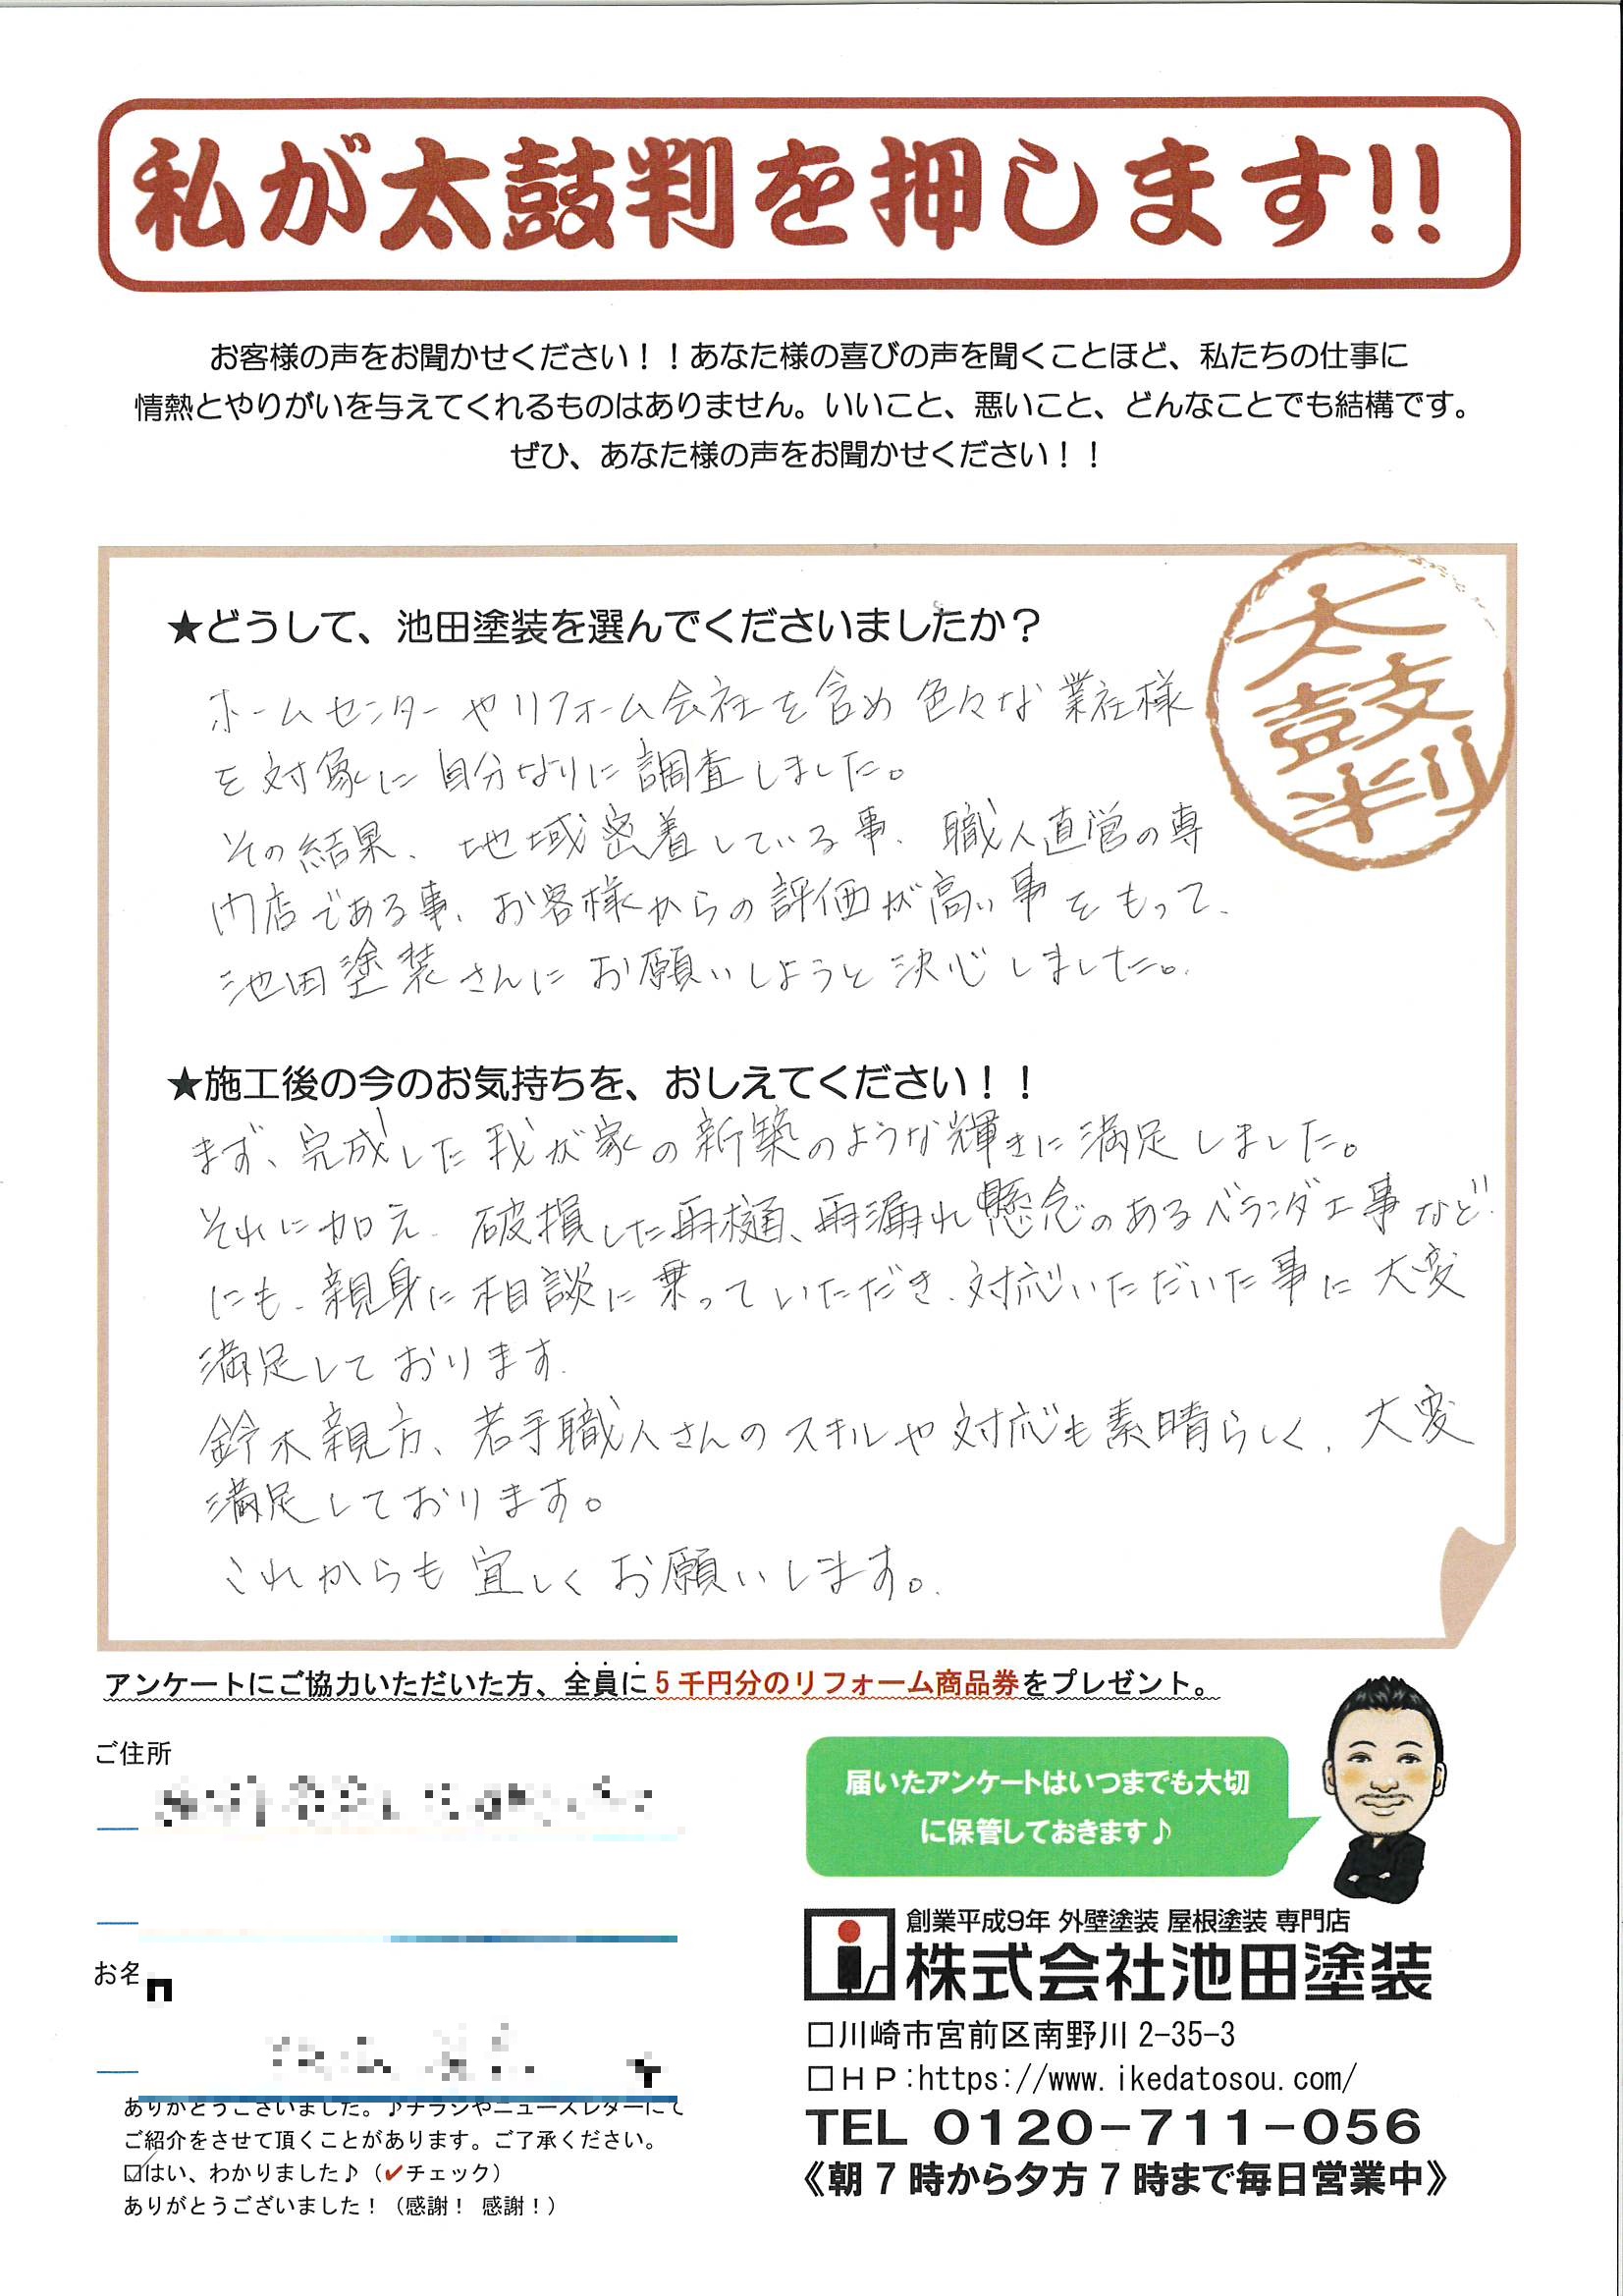 私が太鼓判を押します!!
お客様の声をお聞かせください！！あなた様の喜びの声を聞くことほど、私たちの仕事に
情熱とやりがいを与えてくれるものはありません。いいこと、悪いこと、どんなことでも結構です。
ぜひ、あなた様の声をお聞かせください！！
太鼓判
★どうして、池田塗装を選んでくださいましたか？
ホームセンターやリフォーム会社を含め色々な業社様
を対象に自分なりに調査しました。
その結果、地域密着している事、職人直営の専
門店である事、お客様からの評価が高い事をもって、
池田塗装さんにお願いしようと決心しました。
★施工後の今のお気持ちを、おしえてください！！
まず、完成した我が家の新築のような輝きに満足しました。
それに加え、破損した雨樋、雨漏れ懸念のあるベランダ工事など
にも、親身に相談に乗っていただき、対応いただいた事に大変
満足しております。
鈴木親方、若手職人さんのスキルや対応も素晴らしく、大変
満足しております。
これからも宜しくお願いします。
アンケートにご協力いただいた方、全員に5千円分のリフォーム商品券をプレゼント。
ご住所
届いたアンケートはいつまでも大切
に保管しておきます♪
お名
ありがとうございました。♪チラシやニュースレターにて
ご紹介をさせて頂くことがあります。ご了承ください。
☑はい、わかりました♪（✔チェック）
ありがとうございました！（感謝！ 感謝！）
創業平成9年 外壁塗装 屋根塗装 専門店
株式会社池田塗装
□川崎市宮前区南野川2-35-3
□ＨＰ:https://www.ikedatosou.com/
TEL 0120-711-056
《朝7時から夕方7時まで毎日営業中》